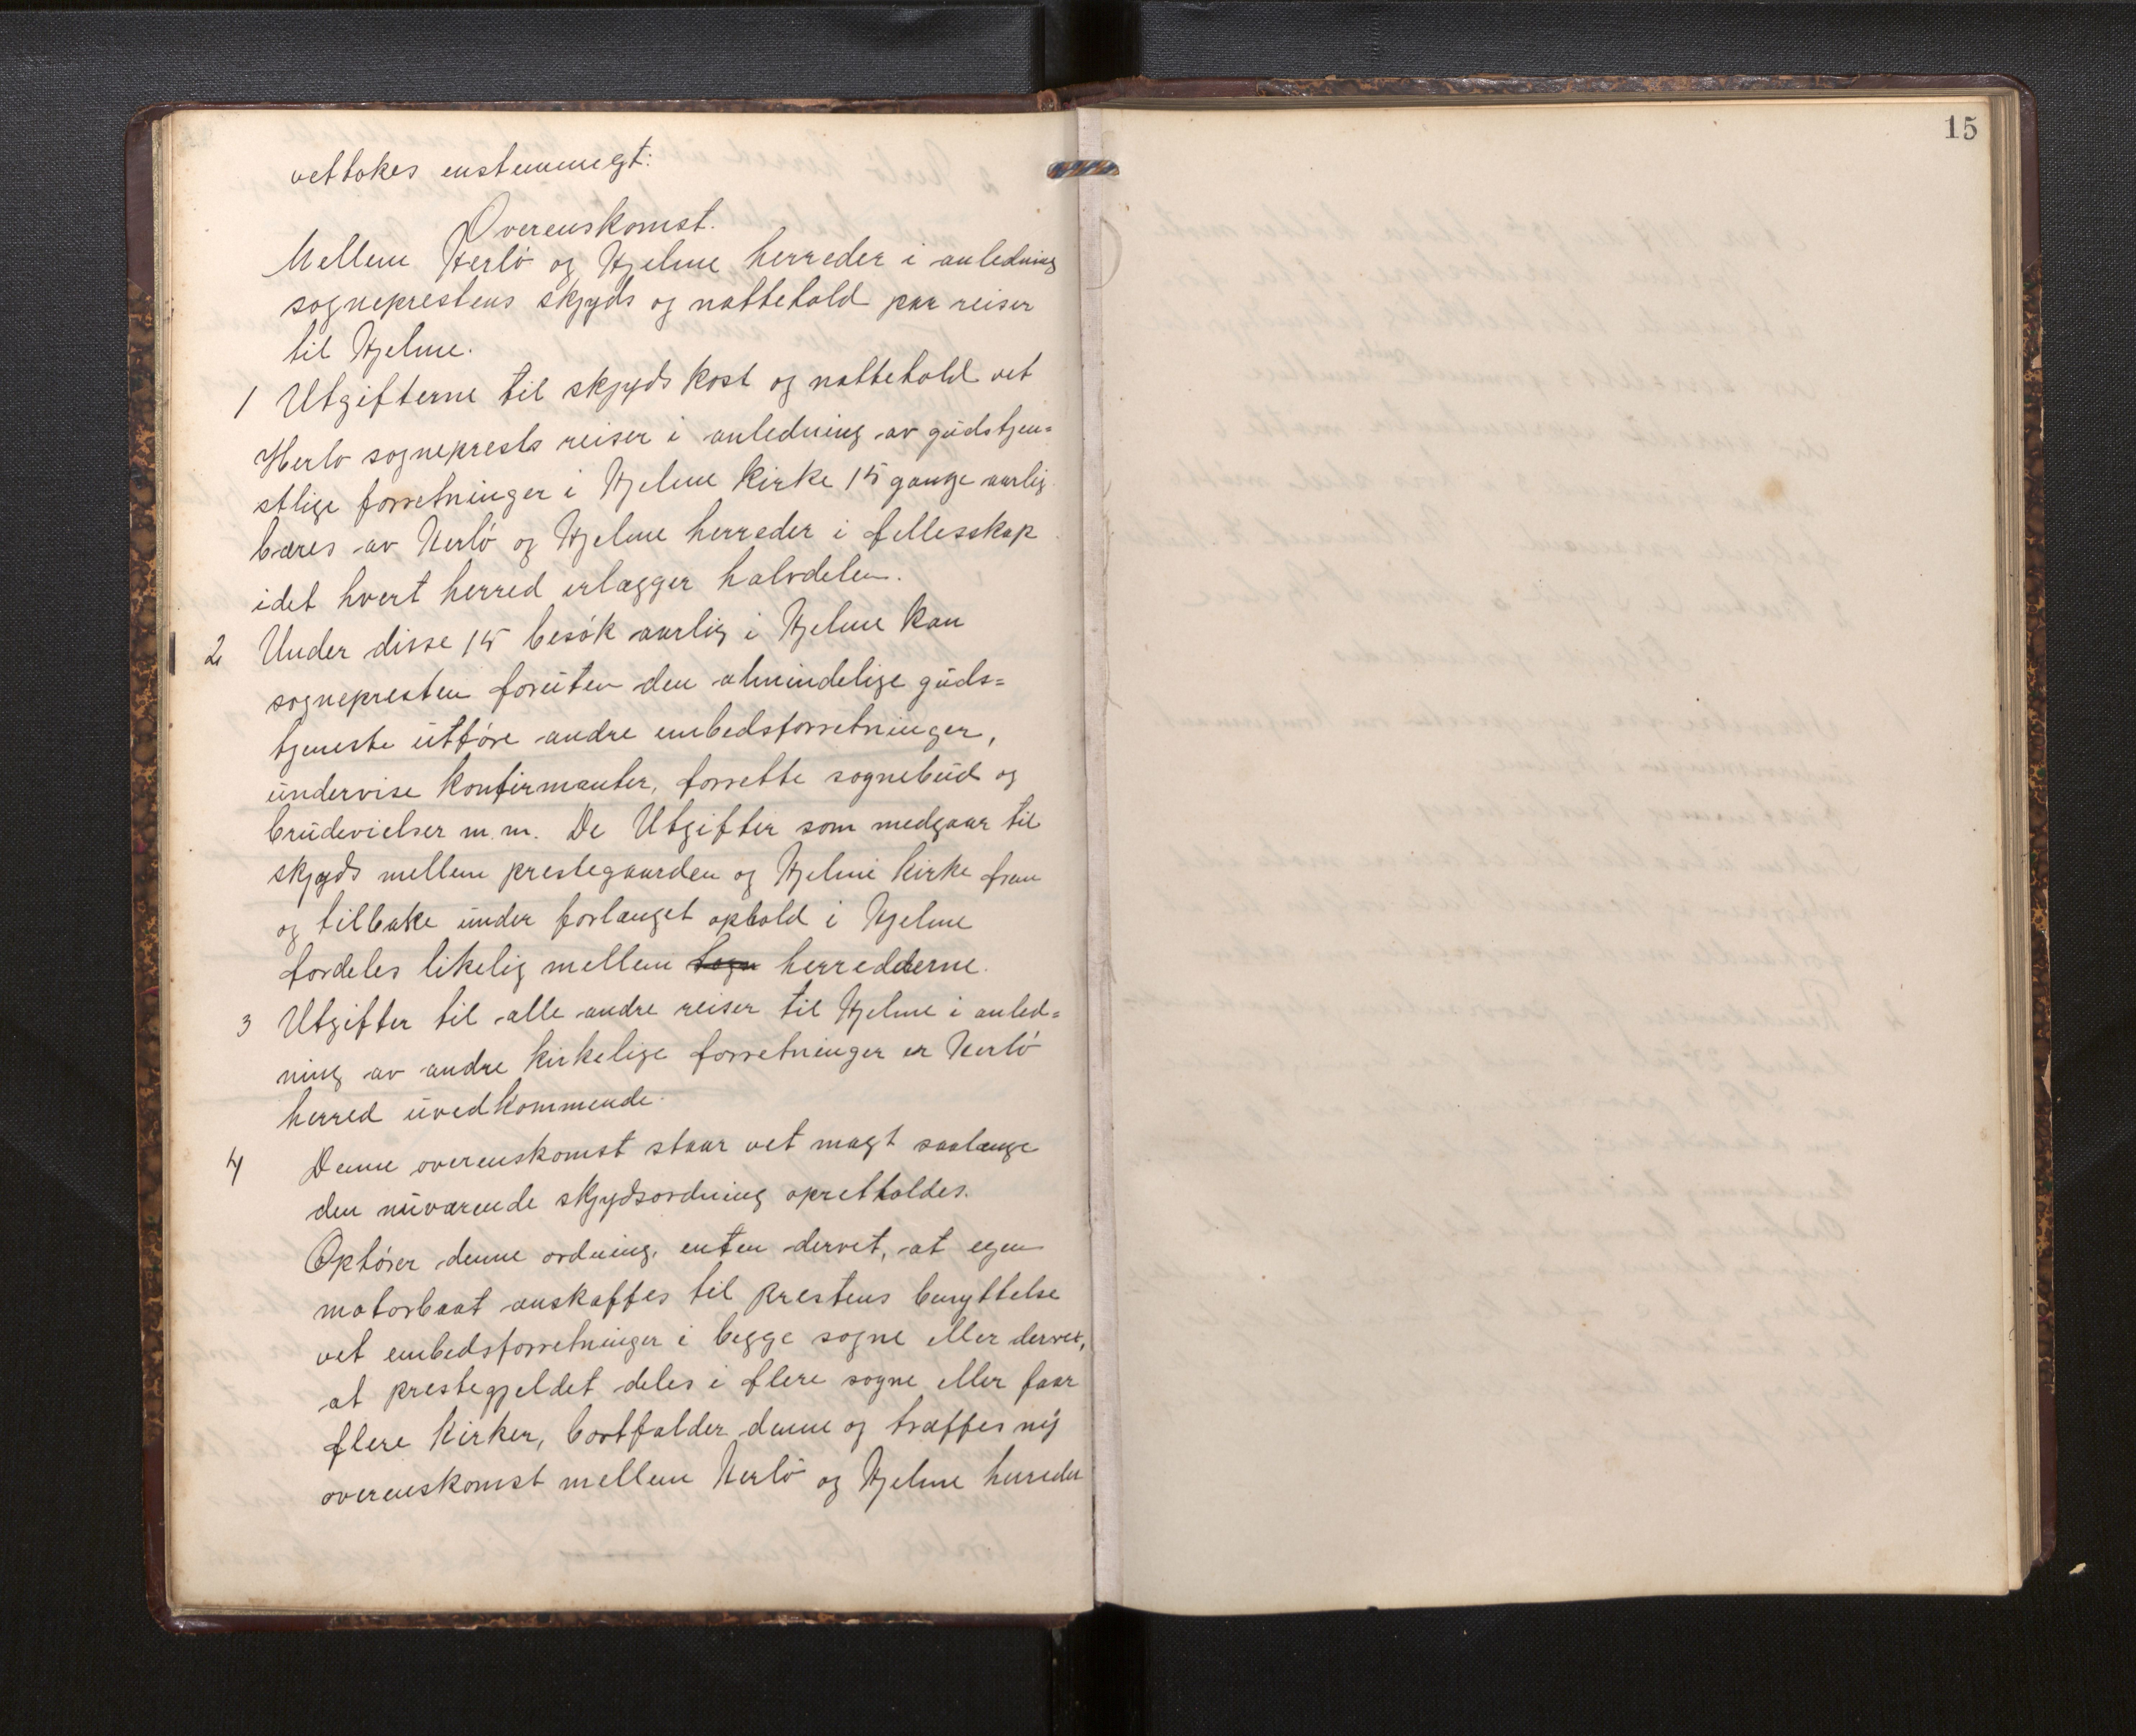 vettokes enstemmegt:
Overenskomst.
Mellem Herlö og Hjelme herreder i anledning
sogneprestens skjyds og nattehold paa reiser
til Hjelme.
1 Utgifterne til skjyds kost og nattehold vet
Herlo sogneprests reiser i anledning av gudstjen=
stlige forretninger i Hjelme kirke 15 gange aarlig
bæres av Herlö og Hjelme herreder i fellesskap
idet hvert herred erlægger halvdelen.
2 Under disse 15 besök aarlig i Hjelme kan
sognepresten foruten den almindelige guds=
tjeneste utföre andre embedsforretninger,
undervise konfirmanter, forrette sognebud og
brudevielser m.m. De Utgifter som medgaar til
skjyds mellem prestegaarden og Hjelme kirke frem
og tilbake under forlænget ophold i Hjelme
fordeles likelig mellem sogn herrederne.
3 Utgifter til alle andre reiser til Hjelme i anled=
ning av andre kirkelige forretninger er Herlö
herred uvedkommende.
4 Denne overenskomst staar vet magt saalænge
den nuværende skjydsordning opretholdes.
Ophörer denne ordning, enten dervet, at egen
motorbaat anskaffes til prestens benyttelse
vet embedsforretninger i begge sogne eller dervet,
at prestegjeldet deles i flere sogne eller faar
flere kirker, bortfalder denne og træffes ny
overenskomst mellem Herlö og Hjelme herreder
15